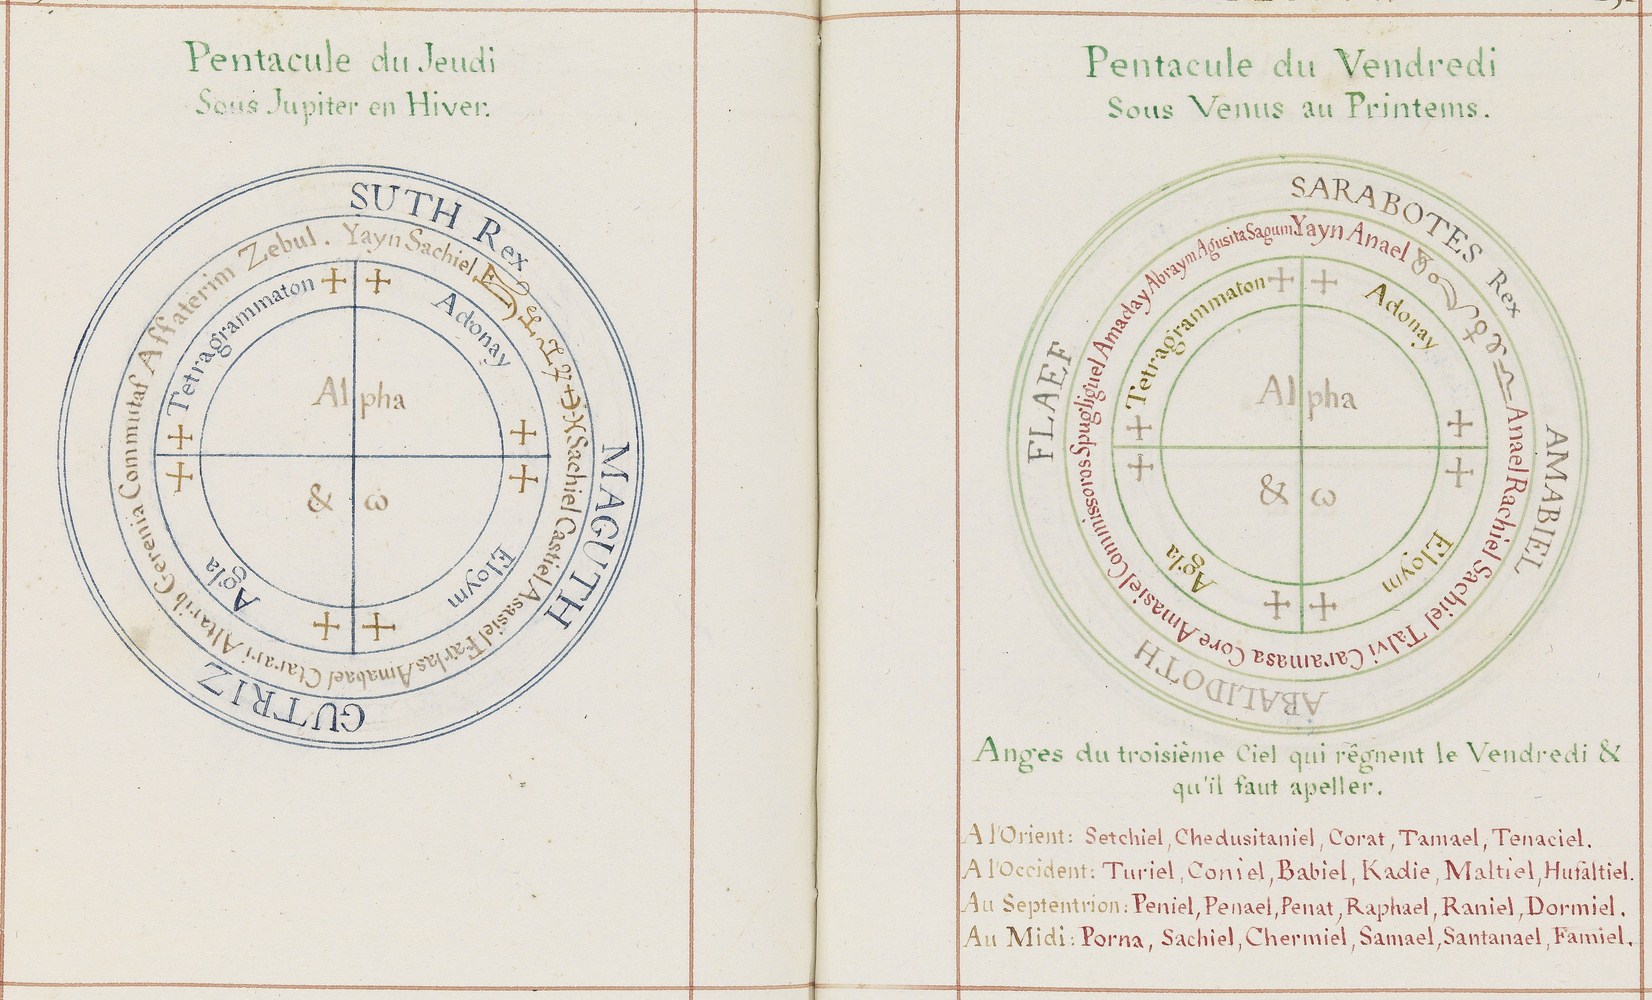 Pentacule du Jeudi
Sous Jupiter en Hiver.
SUTH Rex
MAGUTH
GUTRIZ
Yayn Sachiel
Sachiel Castiel Asasiel Farlas Amabael Ctarari Altarib Gerenia Commutaf Affaterim Zebul.
Adonay
Eloym
Agla
Tetragrammaton
Alpha
& ω
Pentacule du Vendredi
Sous Venus au Printems.
SARABOTES Rex
AMABIEL
ABALIDOTH
FLAEF
Yayn Anael
Anael Rachiel Sachiel Talvi Caramasa Core Amasiel Commissoros Spugliguel Amaday Abraym Agusita Sagum
Adonay
Eloym
Agla
Tetragrammaton
Alpha
& ω
Anges du troisième Ciel qui règnent le Vendredi &
qu'il faut apeller.
A l'Orient: Setchiel, Chedusitaniel, Corat, Tamael, Tenaciel.
A l'Occident: Turiel, Coniel, Babiel, Kadie, Maltiel, Hufaltiel.
Au Septentrion: Peniel, Penael, Penat, Raphael, Raniel, Dormiel.
Au Midi: Porna, Sachiel, Chermiel, Samael, Santanael, Famiel.